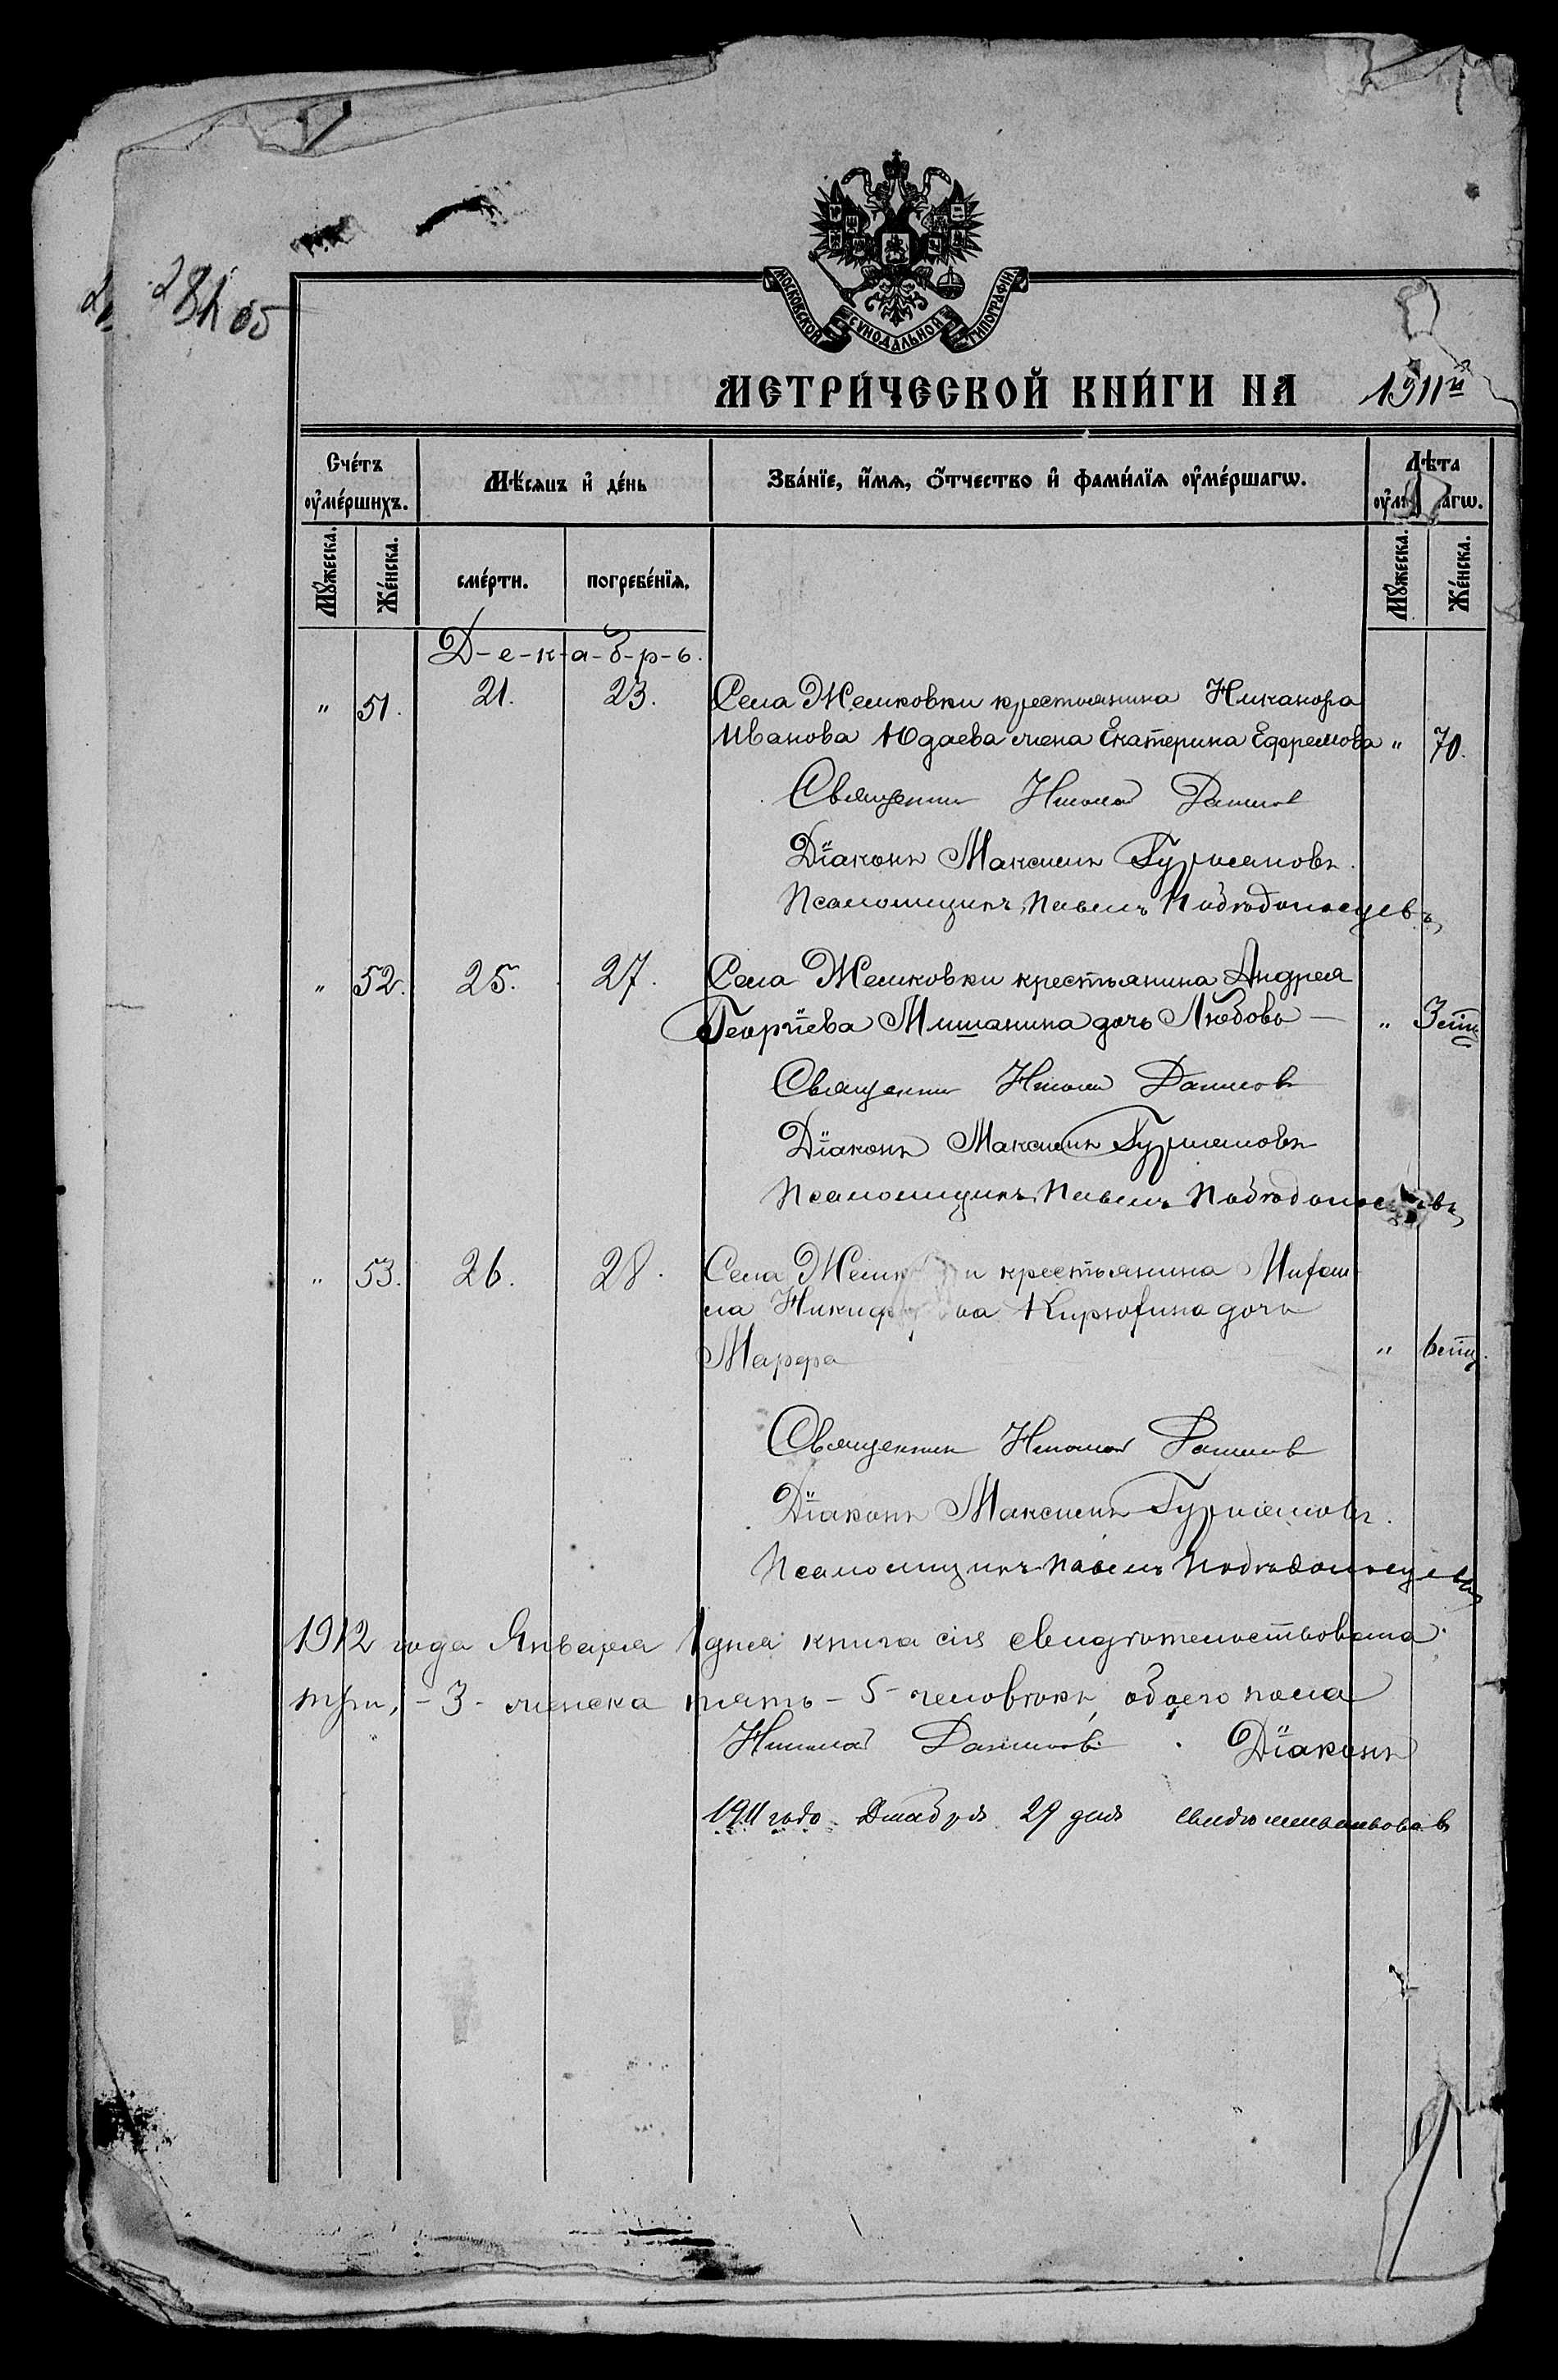 МОСКОВСКОЙ СѴНОДАЛЬНОЙ ТИПОГРАФІИ
МЕТРИ́ЧЕСКОЙ КНИ́ГИ НА 1911й
Сче́тъ ᲂу҆ме́ршихъ.
Мѣ́сяцъ и҆ де́нь
Зва́нїе, и҆́мѧ, ѻ҆́тчество и҆ фами́лїѧ ᲂу҆ме́ршагѡ.
Лѣта
Мꙋ́жеска. Же́нска. сме́рти. погребе́нїѧ. Мꙋ́жеска. Же́нска.
Д-е-к-а-б-р-ь.
" 51. 21. 23. Села Жемковки крестьянина Никанора
Иванова Юдаева жена Екатерина Ефремова " 70.
Священник Николай Данилов
Дїаконъ Максимъ Гурмановъ.
Псаломщикъ Павелъ Побѣдоносцевъ
" 52. 25. 27. Села Жемковки крестьянина Андрея
Георгїева Мишанина дочь Любовь — " 3 снт
Священник Николай Данилов
Дїаконъ Максимъ Гурмановъ
Псаломщикъ Павелъ Побѣдоносцевъ
" 53. 26. 28. Села крестьянина
ла дочь
Марфа " 6
Священник Николай Данилов
Дїаконъ Максимъ Гурмановъ.
Псаломщикъ Павелъ Побѣдоносцевъ
1912 года Января 1 дня книга сія свидѣтельствована
три, - 3 - женска пять - 5 - человѣкъ, обоего пола
Николай Данилов. Дїаконъ
1911 года Декабря 29 дня свидѣтельствовалъ